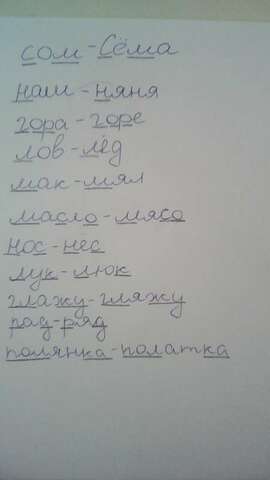 сом - Сёма
наш - няня
гора - горе
лов - лёд
мак - мял
масло - мясо
нос - нёс
лук - люк
глажу - гляжу
рад - ряд
полянка - палатка